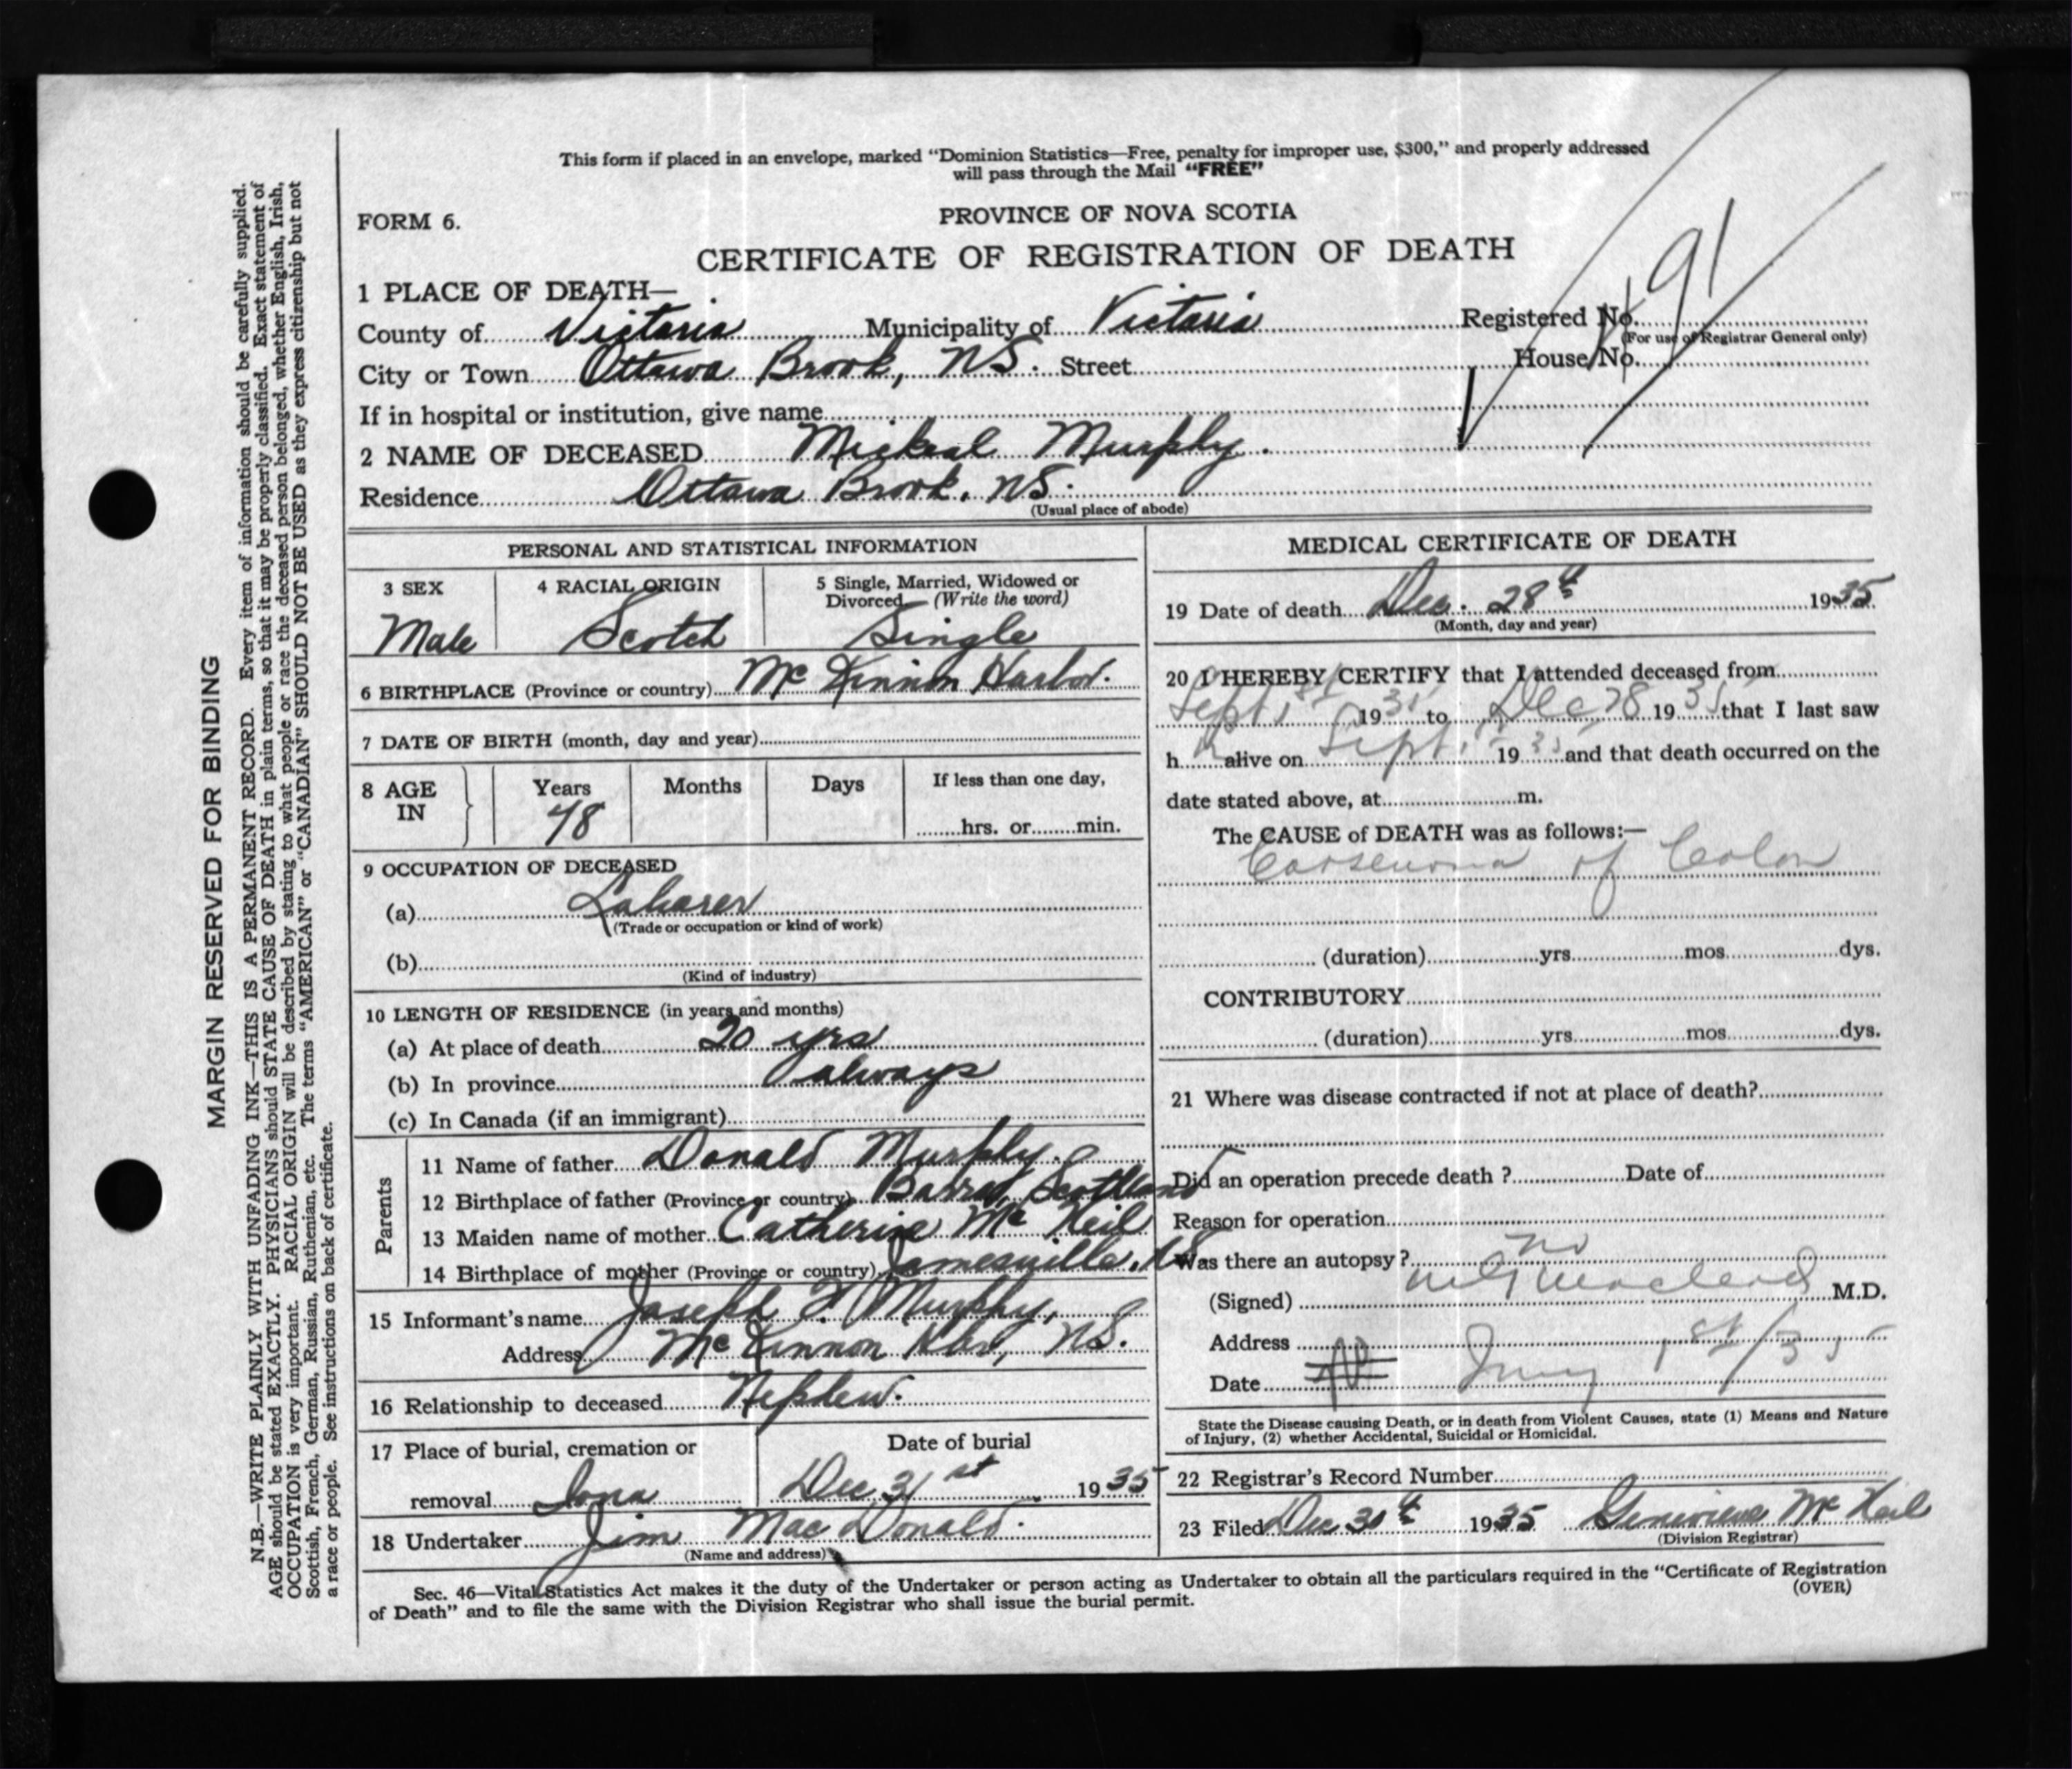 This form if placed in an envelope, marked “Dominion Statistics—Free, penalty for improper use, $300,” and properly addressed
will pass through the Mail “FREE”
FORM 6.
PROVINCE OF NOVA SCOTIA
CERTIFICATE OF REGISTRATION OF DEATH
1 PLACE OF DEATH—
County of Victoria Municipality of Victoria Registered No.
(For use of Registrar General only)
491
City or Town Ottawa Brook, NS. Street House No.
If in hospital or institution, give name
2 NAME OF DECEASED Mickeal Murphy.
Residence Ottawa Brook, NS.
(Usual place of abode)
PERSONAL AND STATISTICAL INFORMATION
3 SEX
Male
4 RACIAL ORIGIN
Scotch
5 Single, Married, Widowed or
Divorced (Write the word)
Single
6 BIRTHPLACE (Province or country) Mc Kinnon Harbor.
7 DATE OF BIRTH (month, day and year)
8 AGE IN
Years Months Days If less than one day,
48 hrs. or min.
9 OCCUPATION OF DECEASED
(a) Laborer
(Trade or occupation or kind of work)
(b)
(Kind of industry)
10 LENGTH OF RESIDENCE (in years and months)
(a) At place of death 20 yrs
(b) In province always
(c) In Canada (if an immigrant)
Parents
11 Name of father Donald Murphy.
12 Birthplace of father (Province or country) Barra, Scotland
13 Maiden name of mother Catherine Mc Neil
14 Birthplace of mother (Province or country) Jamesville, NS
15 Informant's name Joseph F. Murphy,
Address Mc Kinnon Hbr, NS.
16 Relationship to deceased Nephew.
17 Place of burial, cremation or
removal Iona
Date of burial
Dec 31st 1935
18 Undertaker Jim Mac Donald.
(Name and address)
MEDICAL CERTIFICATE OF DEATH
19 Date of death Dec. 28th 1935
(Month, day and year)
20 I HEREBY CERTIFY that I attended deceased from
Sept 1st 1935 to Dec 28 1935 that I last saw
h alive on Sept. 1935 and that death occurred on the
date stated above, at m.
The CAUSE of DEATH was as follows:—
Carsenoma of Colon
(duration) yrs. mos. dys.
CONTRIBUTORY
(duration) yrs. mos. dys.
21 Where was disease contracted if not at place of death?
Did an operation precede death ? Date of
Reason for operation
Was there an autopsy ? no
(Signed) Macleod M.D.
Address
Date 1st/35
State the Disease causing Death, or in death from Violent Causes, state (1) Means and Nature
of Injury, (2) whether Accidental, Suicidal or Homicidal.
22 Registrar's Record Number
23 Filed Dec 30th 1935 Genevieve Mc Neil
(Division Registrar)
Sec. 46—Vital Statistics Act makes it the duty of the Undertaker or person acting as Undertaker to obtain all the particulars required in the “Certificate of Registration
of Death” and to file the same with the Division Registrar who shall issue the burial permit.
(OVER)
MARGIN RESERVED FOR BINDING
N.B.—WRITE PLAINLY WITH UNFADING INK—THIS IS A PERMANENT RECORD. Every item of information should be carefully supplied.
AGE should be stated EXACTLY. PHYSICIANS should STATE CAUSE OF DEATH in plain terms, so that it may be properly classified. Exact statement of
OCCUPATION is very important. RACIAL ORIGIN will be described by stating to what people or race the deceased person belonged, whether English, Irish,
Scottish, French, German, Russian, Ruthenian, etc. The terms “AMERICAN” or “CANADIAN” SHOULD NOT BE USED as they express citizenship but not
a race or people. See instructions on back of certificate.